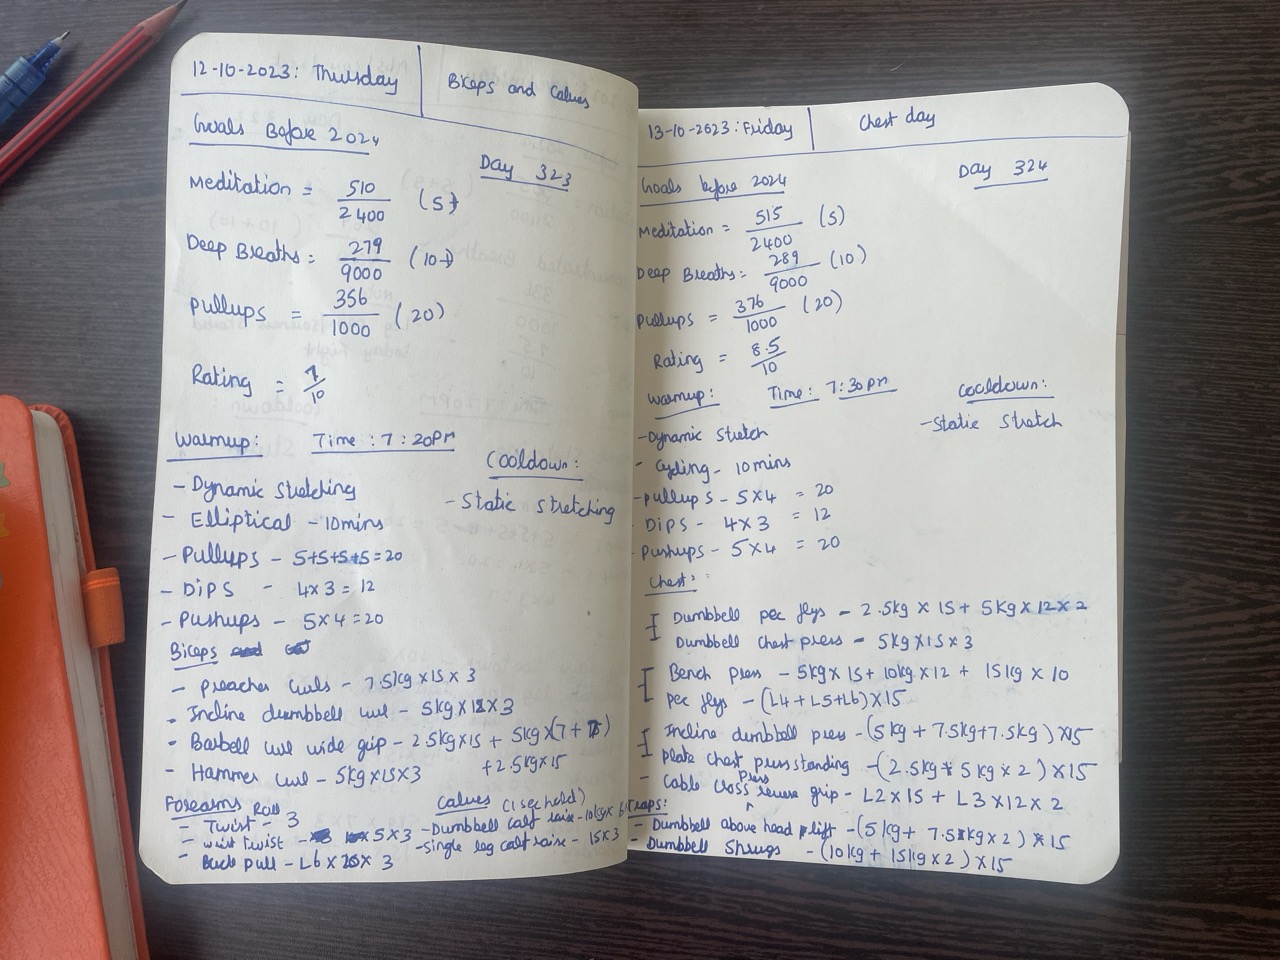 12-10-2023: Thursday
Biceps and Calves
Goals Before 2024
Day 323
Meditation = 510/2400 (5)
Deep Breaths = 279/9000 (10)
Pullups = 356/1000 (20)
Rating = 7/10
Warmup: Time: 7:20pm
Cooldown:
- Dynamic Stretching
- Static Stretching
- Elliptical - 10mins
- Pullups - 5+5+5+5=20
- Dips - 4x3=12
- Pushups - 5x4=20
Biceps
- Preacher curls - 7.5kg x 15 x 3
- Incline dumbbell curl - 5kg x 12 x 3
- Barbell curl wide grip - 2.5kgx15 + 5kgx(7+
+2.5kgx15
- Hammer curl - 5kgx15x3
Forearms
- Twist - 3
- wrist twist - 5x3
- Back pull - L6 x 3
Calves (1 sec hold)
- Dumbbell calf raise - 10kgx
- Single leg calf raise - 15x3
13-10-2023: Friday
Chest day
Goals before 2024
Day 324
Meditation = 515/2400 (5)
Deep Breaths = 289/9000 (10)
Pullups = 376/1000 (20)
Rating = 8.5/10
Warmup: Time: 7:30pm
Cooldown:
- Dynamic Stretch
- Static Stretch
- Cycling - 10mins
- Pullups - 5x4 = 20
- Dips - 4x3 = 12
- Pushups - 5x4 = 20
Chest:
Dumbbell pec flys - 2.5kg x 15 + 5kg x 12 x 2
Dumbbell chest press - 5kgx15x3
Bench Press - 5kgx15+10kgx12 + 15kg x 10
Pec flys - (L4+L5+L6)x15
Incline dumbbell press - (5kg + 7.5kg+7.5kg)x15
Plate chest press standing - (2.5kg 5kg x 2) x15
- Cable cross Press reverse grip - L2x15 + L3x12x2
Traps:
- Dumbbell above head lift - (5kg + 7.5kgx2) x15
- Dumbbell Shrugs - (10kg + 15kgx2)x15